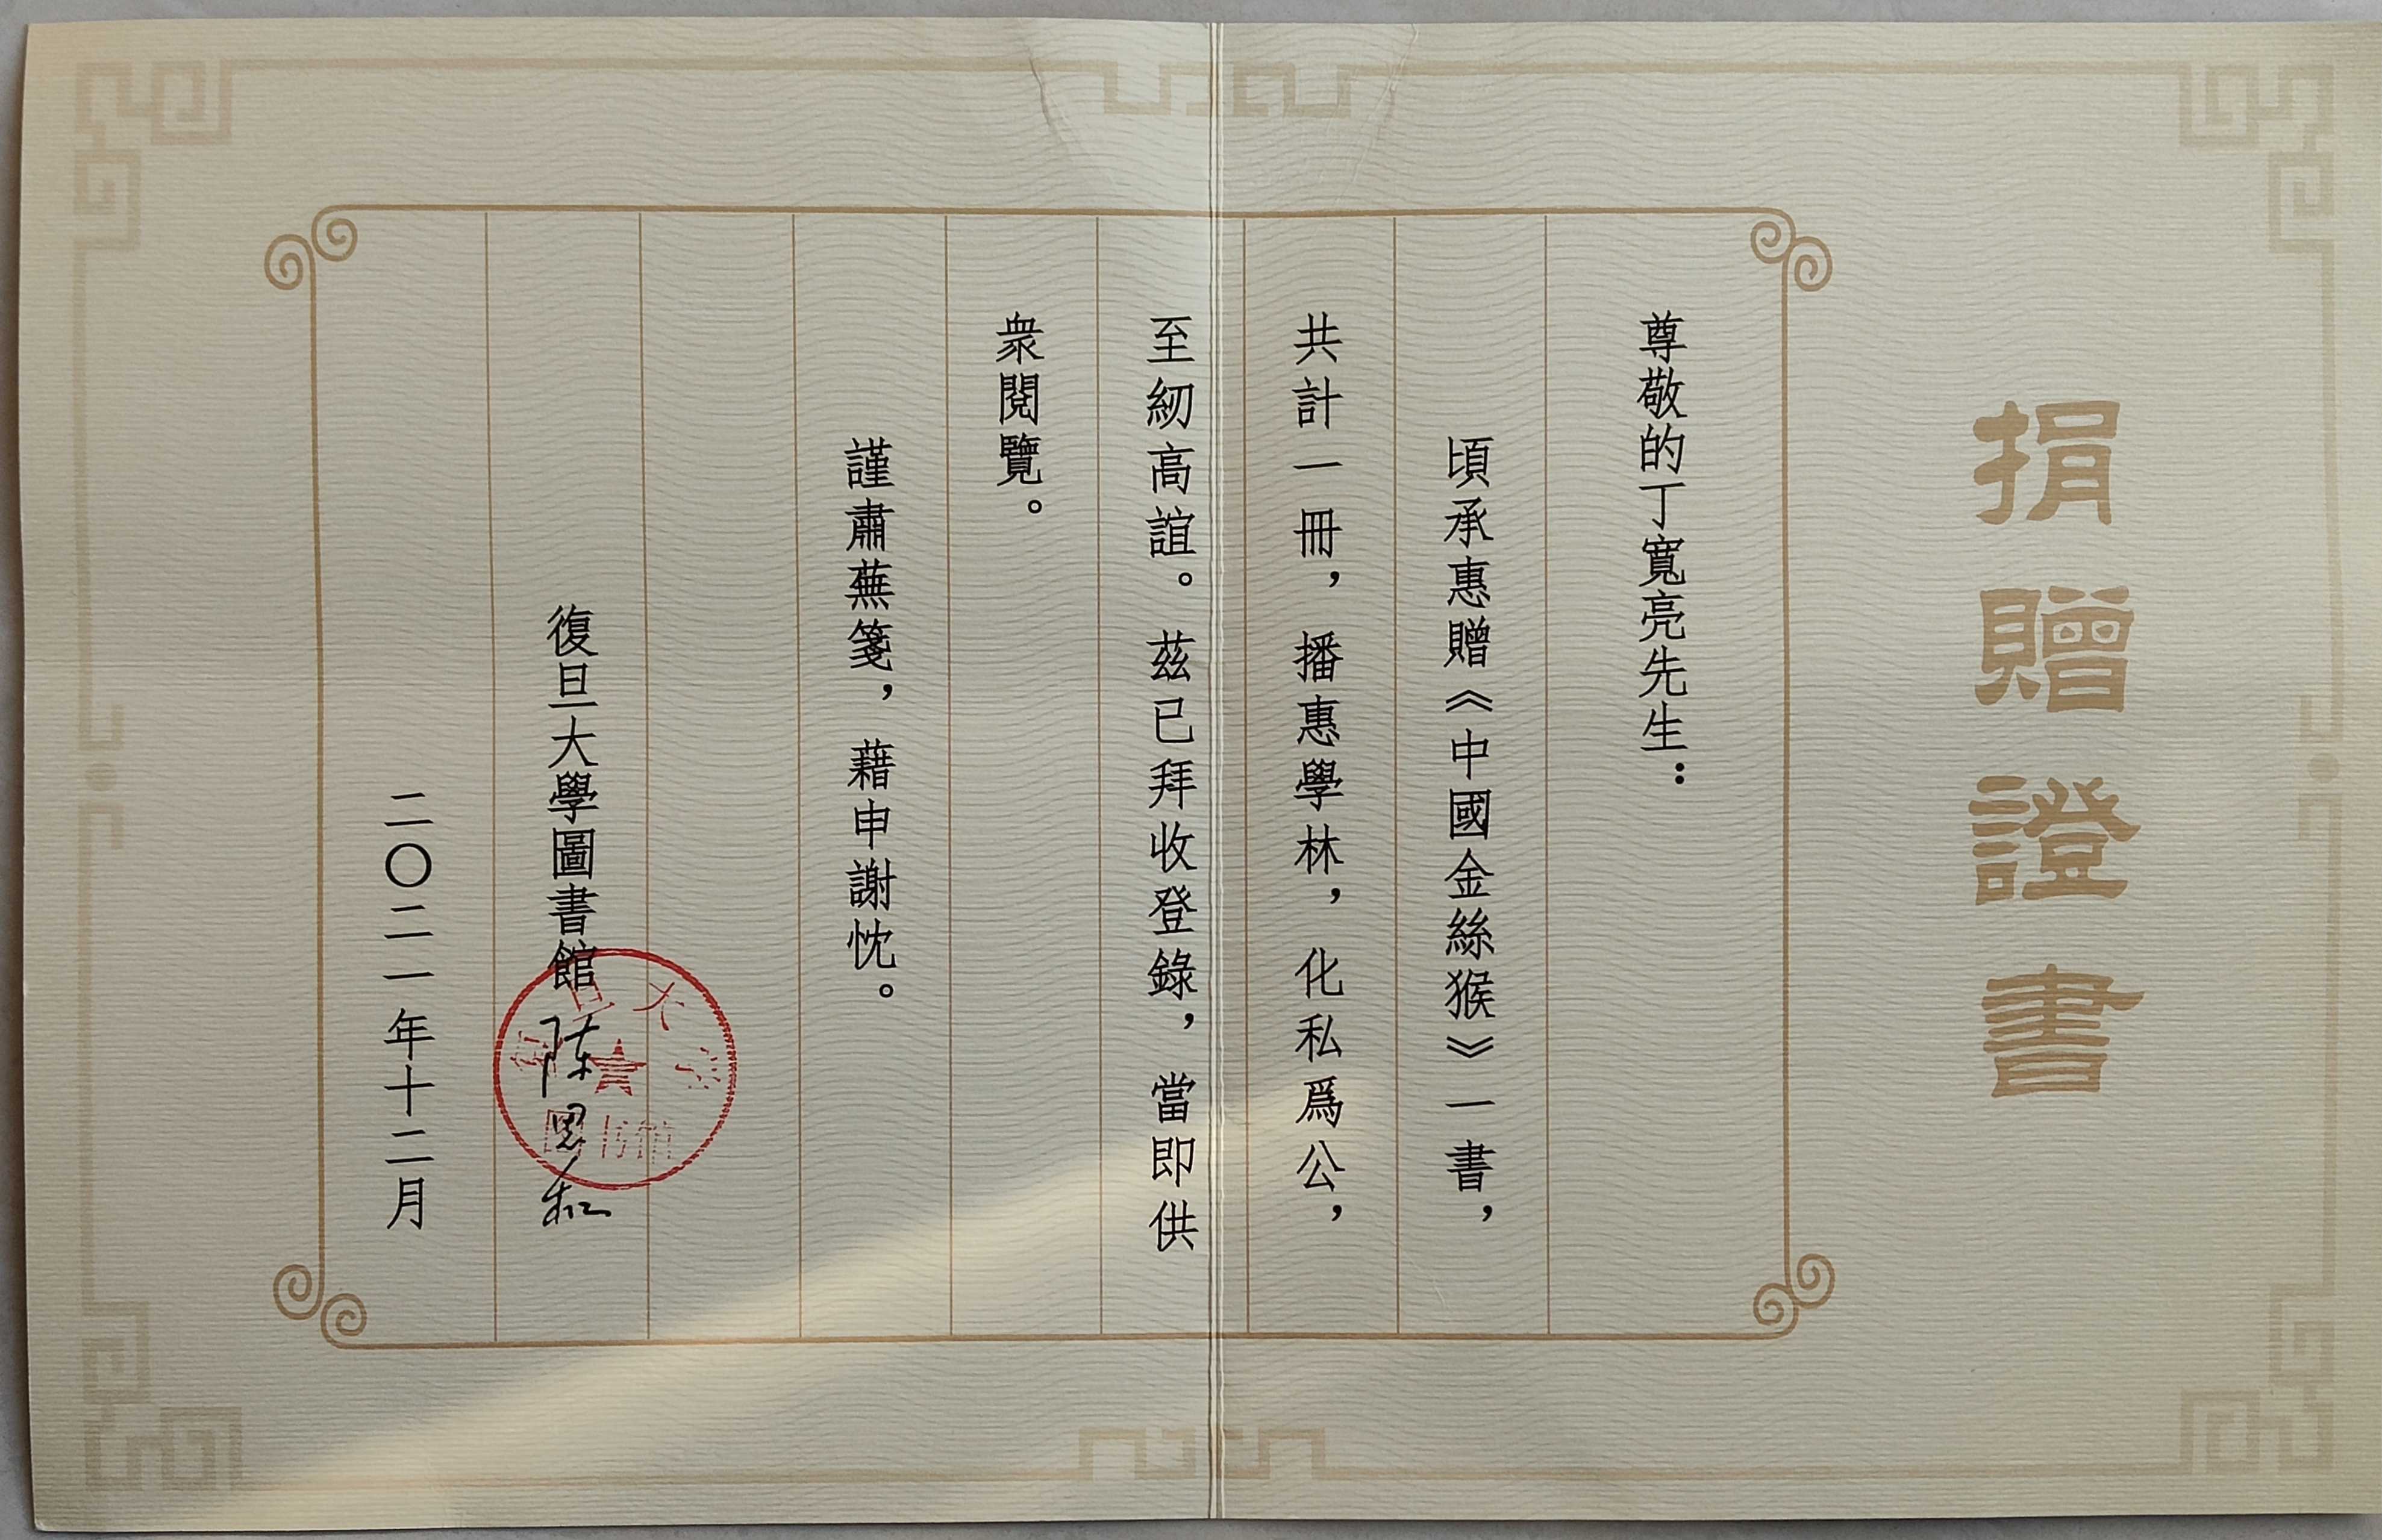 捐贈證書
尊敬的丁寬亮先生：
頃承惠贈《中國金絲猴》一書，
共計一冊，播惠學林，化私爲公，
至紉高誼。茲已拜收登錄，當即供
衆閱覽。
謹肅蕪箋，藉申謝忱。
復旦大學圖書館
陈思和
二〇二一年十二月
复旦大学
图书馆